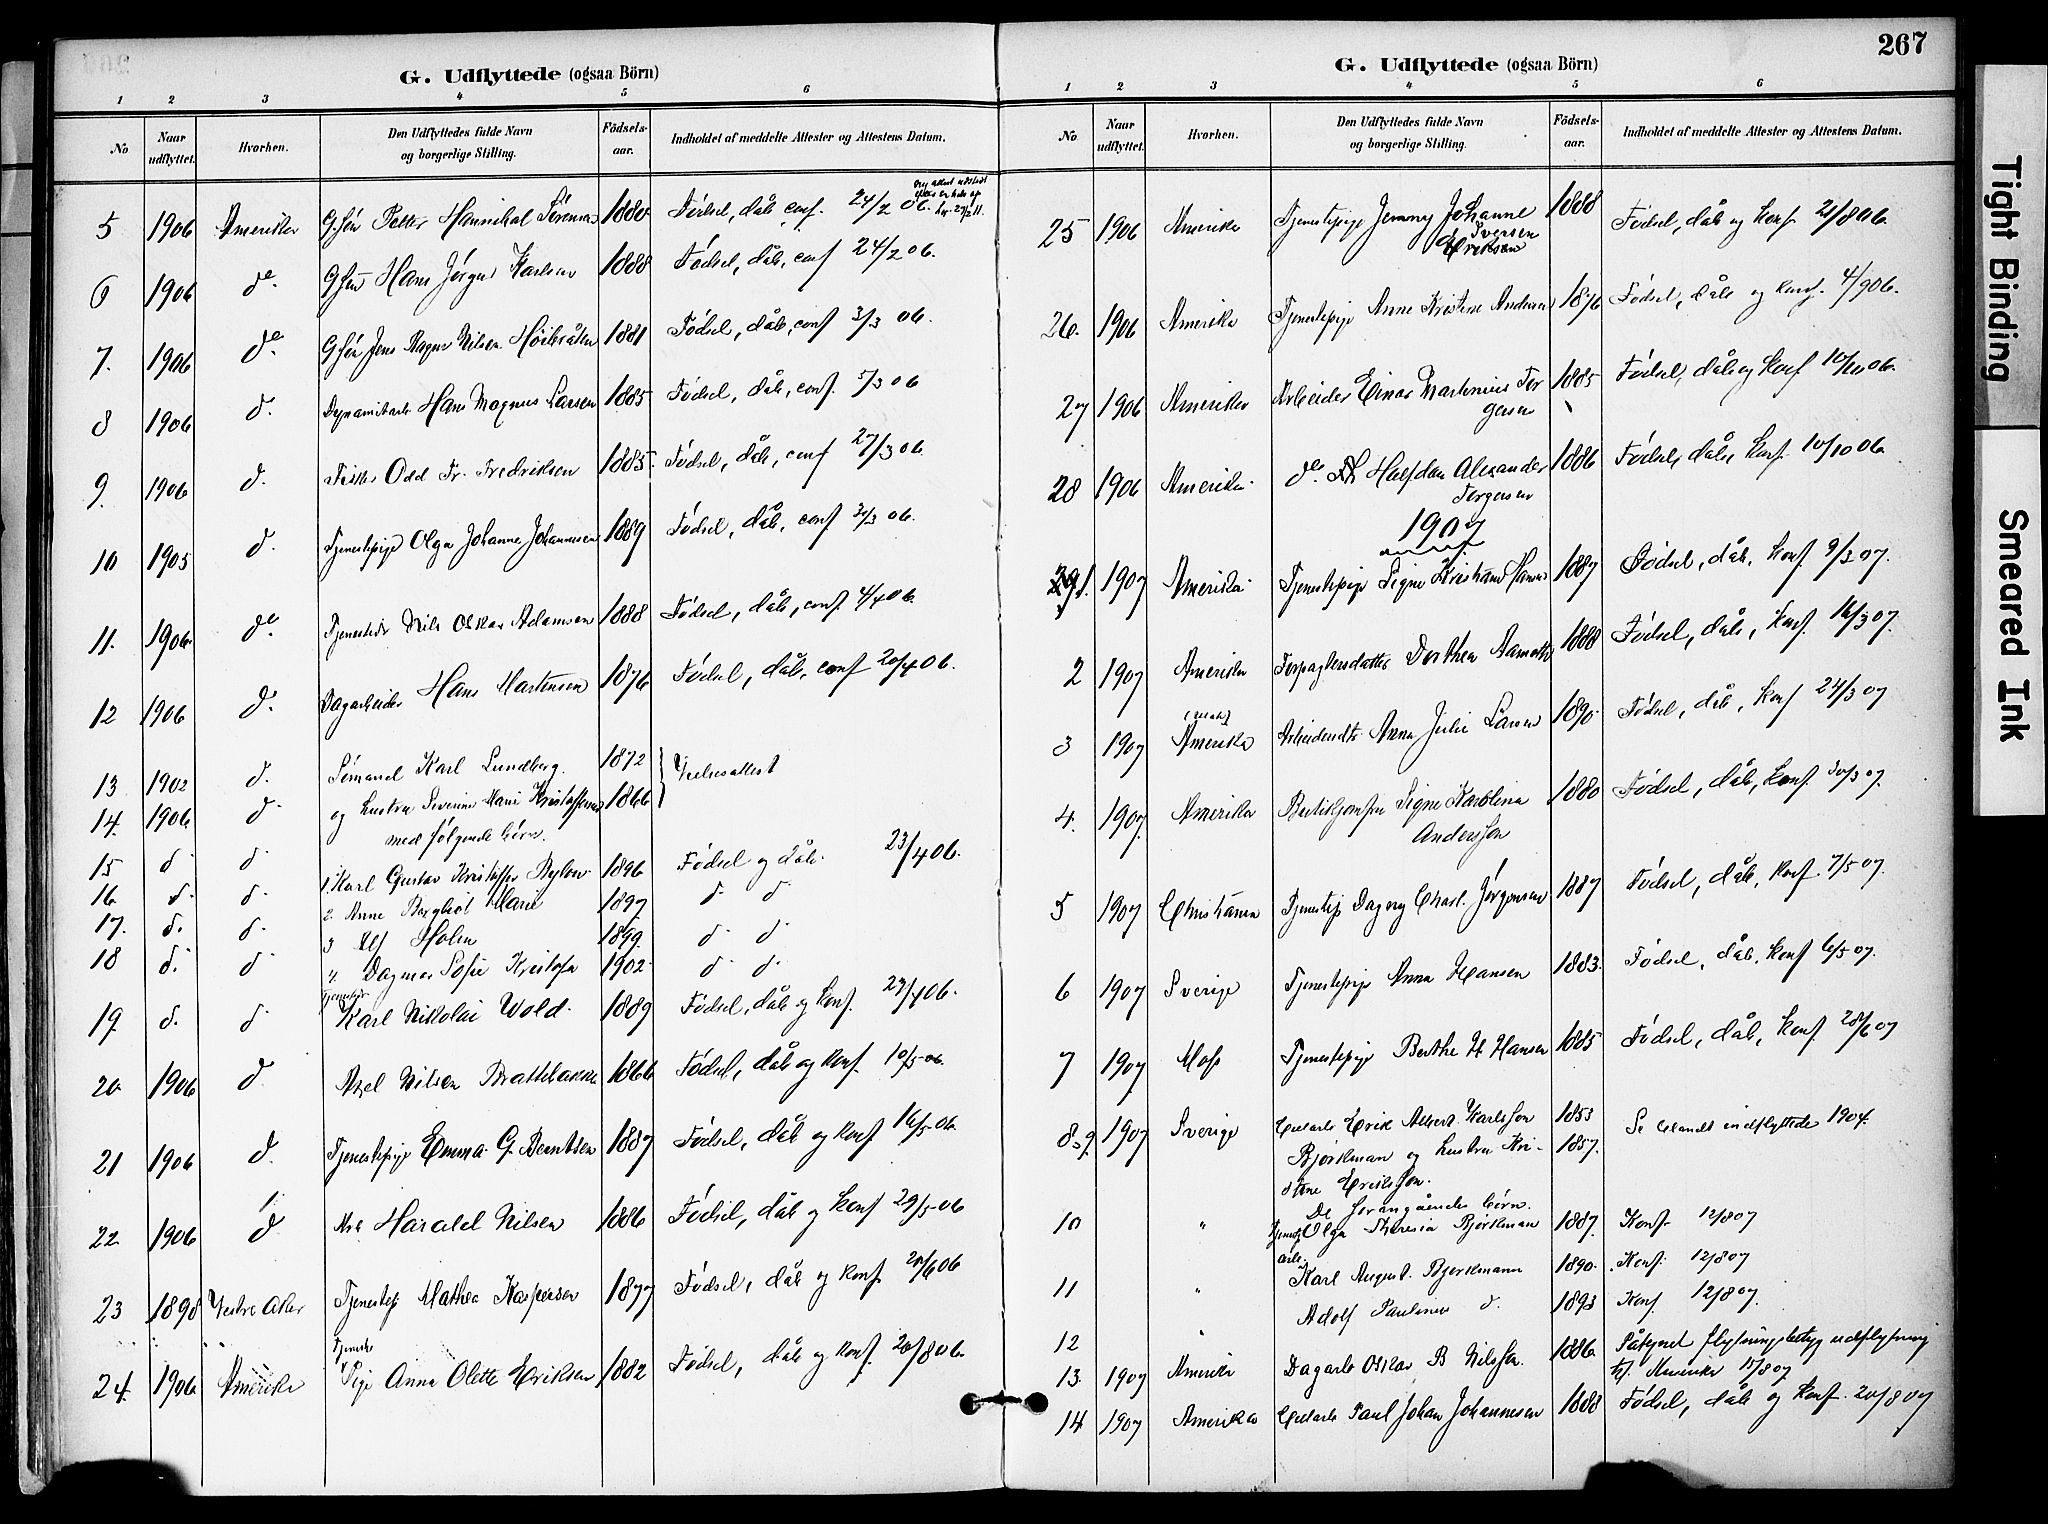 G. Udflyttede (ogsaa Börn)
1 2 3 4 5 6
No Naar udflyttet. Hvorhen. Den Udflyttedes fulde Navn og borgerlige Stilling. Födsels-aar. Indholdet af meddelte Attester og Attestens Datum.
5 1906 Amerika Gsøn Petter Hannibal Sørensen 1888 Fødsel, dåb, conf. 24/2 06.
6 1906 do. Gsøn Hans Jørgen Karlsen 1888 Fødsel, dåb, conf 24/2 06.
7. 1906 do. Gsøn Jens Ragnv Nilsen Høibråten 1881 Fødsel, dåb, conf 3/3 06.
8 1906 d. Dynamitarb Hans Magnus Larsen 1885 Fødsel, dåb, conf. 5/3 06
9. 1906 d. Fisker Odd Fr. Fredriksen 1885. Fødsel, dåb, conf 27/3 06.
10 1905 d. Tjenestepige Olga Johanne Johannesen 1889 Fødsel, dåb, conf 30/3 06.
11. 1906 do. Tjenestedr Nils Oskar Adamsen 1888 Fødsel, dåb, conf. 4/4 06.
12 1906 d. Dagarbeider Hans Martinsen 1876 Fødsel, dåb, conf 20/4 06.
13 1902 d. Sømand Karl Lundberg. 1872 Vielsesattest
14. 1906 d. og hustru Severine Marie Kristoffersen 1866
med følgende børn.
15 d d 1. Karl Gustav Kristoffer Bylow 1896 Fødsel og dåb. 23/4 06.
16 d. d. 2. Anne Borghild Marie 1897 d. d.
17. d. d. 3 Alf Holm 1899. d. d.
18 d. d 4. Dagmar Sofie Kristofa 1902. d d.
19. d. d Tjenestedr Karl Nikolai Wold. 1889 Fødsel, dåb og konf. 27/4 06.
20 1906 d. Axel Nilsen Brattebakke 1866 Fødsel, dåb og konf. 10/5 06.
21 1906 d. Tjenestepige Emma G. Berntsen 1887 Fødsel, dåb og konf 16/5 06.
22 1906 d Arb Harald Nilsen 1886 Fødsel, dåb og konf 29/5 06
23 1898 Vestre Aker Tjenestep Mathea Kaspersen 1877 Fødsel, dåb og konf. 20/6 06
24. 1906 Amerika Tjeneste Pige Anna Olette Eriksen 1882 Fødsel, dåb og konf. 20/8 06.
267
G. Udflyttede (ogsaa Börn)
1 2 3 4 5 6
No Naar udflyttet. Hvorhen. Den Udflyttedes fulde Navn og borgerlige Stilling. Födsels-aar. Indholdet af meddelte Attester og Attestens Datum.
25 1906 Amerika Tjenestepige Jenny Johanne 1888 Fødsel, dåb og konf 21/8 06.
Iversen
Eriksen
26. 1906 Amerika Tjenestepige Anne Kristine Andersen 1876 Fødsel, dåb og konf. 4/9 06.
27 1906 Amerika Arbeider Einar Martinius Tor 1885 Fødsel, dåb og konf 10/10 06.
gersen
28 1906 Amerika do. Halfdan Alexander 1886 Fødsel, dåb, konf. 10/10 06.
Torgersen
1907
1. 1907 Amerika Tjenestepige Signe Kristiane Hansen 1887 Fødsel, dåb, konf 9/3 07.
2 1907 Amerika Forpagterdatter Dorthea Aamodt 1888 Fødsel, dåb, konf. 16/3 07.
3 1907 Amerika Arbeiderdtr Anna Julie Larsen 1890 Fødsel, dåb, konf 24/3 07
4. 1907 Amerika Butikjomfru Signe Karolina 1880 Fødsel, dåb, konf. 30/3 07.
Andersson
5 1907 Christiania Tjenestep Dagny Charl. Jørgensen 1887 Fødsel, dåb, konf. 7/5 07.
6 1907 Sverige Tjenestepige Anna Hansen 1883. Fødsel, dåb, konf 6/5 07.
7 1907 Moss Tjenestepige Berthe H Hansen 1885 Fødsel, dåb, konf. 28/6 07
8-9. 1907 Sverige Erik Albert Karlsson 1853 Se blandt indflyttede 1904.
Bjørkman og hustru Kri- 1857.
stine Eriksson.
De forangåendes børn.
10 " Tjenestp Olga Theresia Bjørkman 1887. Konf. 12/8 07
11 " arb. Karl August. Bjørkmann 1890. Konf. 12/8 07
12 " Adolf Paulinus d. 1893 Konf. 12/8 07.
13. 1907 Amerika Dagarb Oskar B Nilsson. 1886. Påtegnet flytningsbetyg udflytning
til Amerika 15/8 07
14 1907 Amerika Paul Johan Johannesen 1888 Fødsel, dåb og konf. 20/8 07
Tight Binding
Smeared Ink